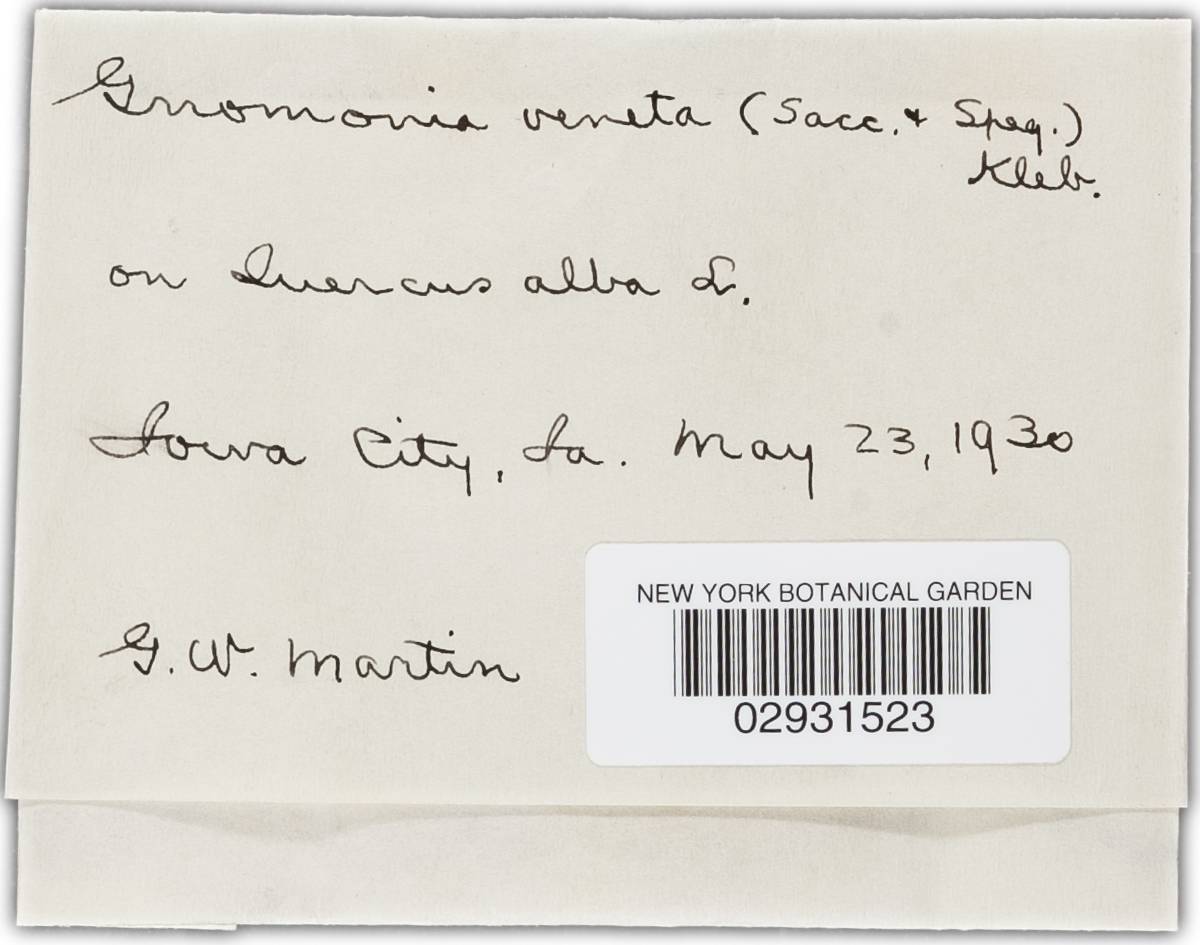 Gnomonia veneta (Sacc. & Speg.)
Kleb.
on Quercus alba L.
Iowa City, Ia. May 23, 1930
G. W. Martin
NEW YORK BOTANICAL GARDEN
02931523